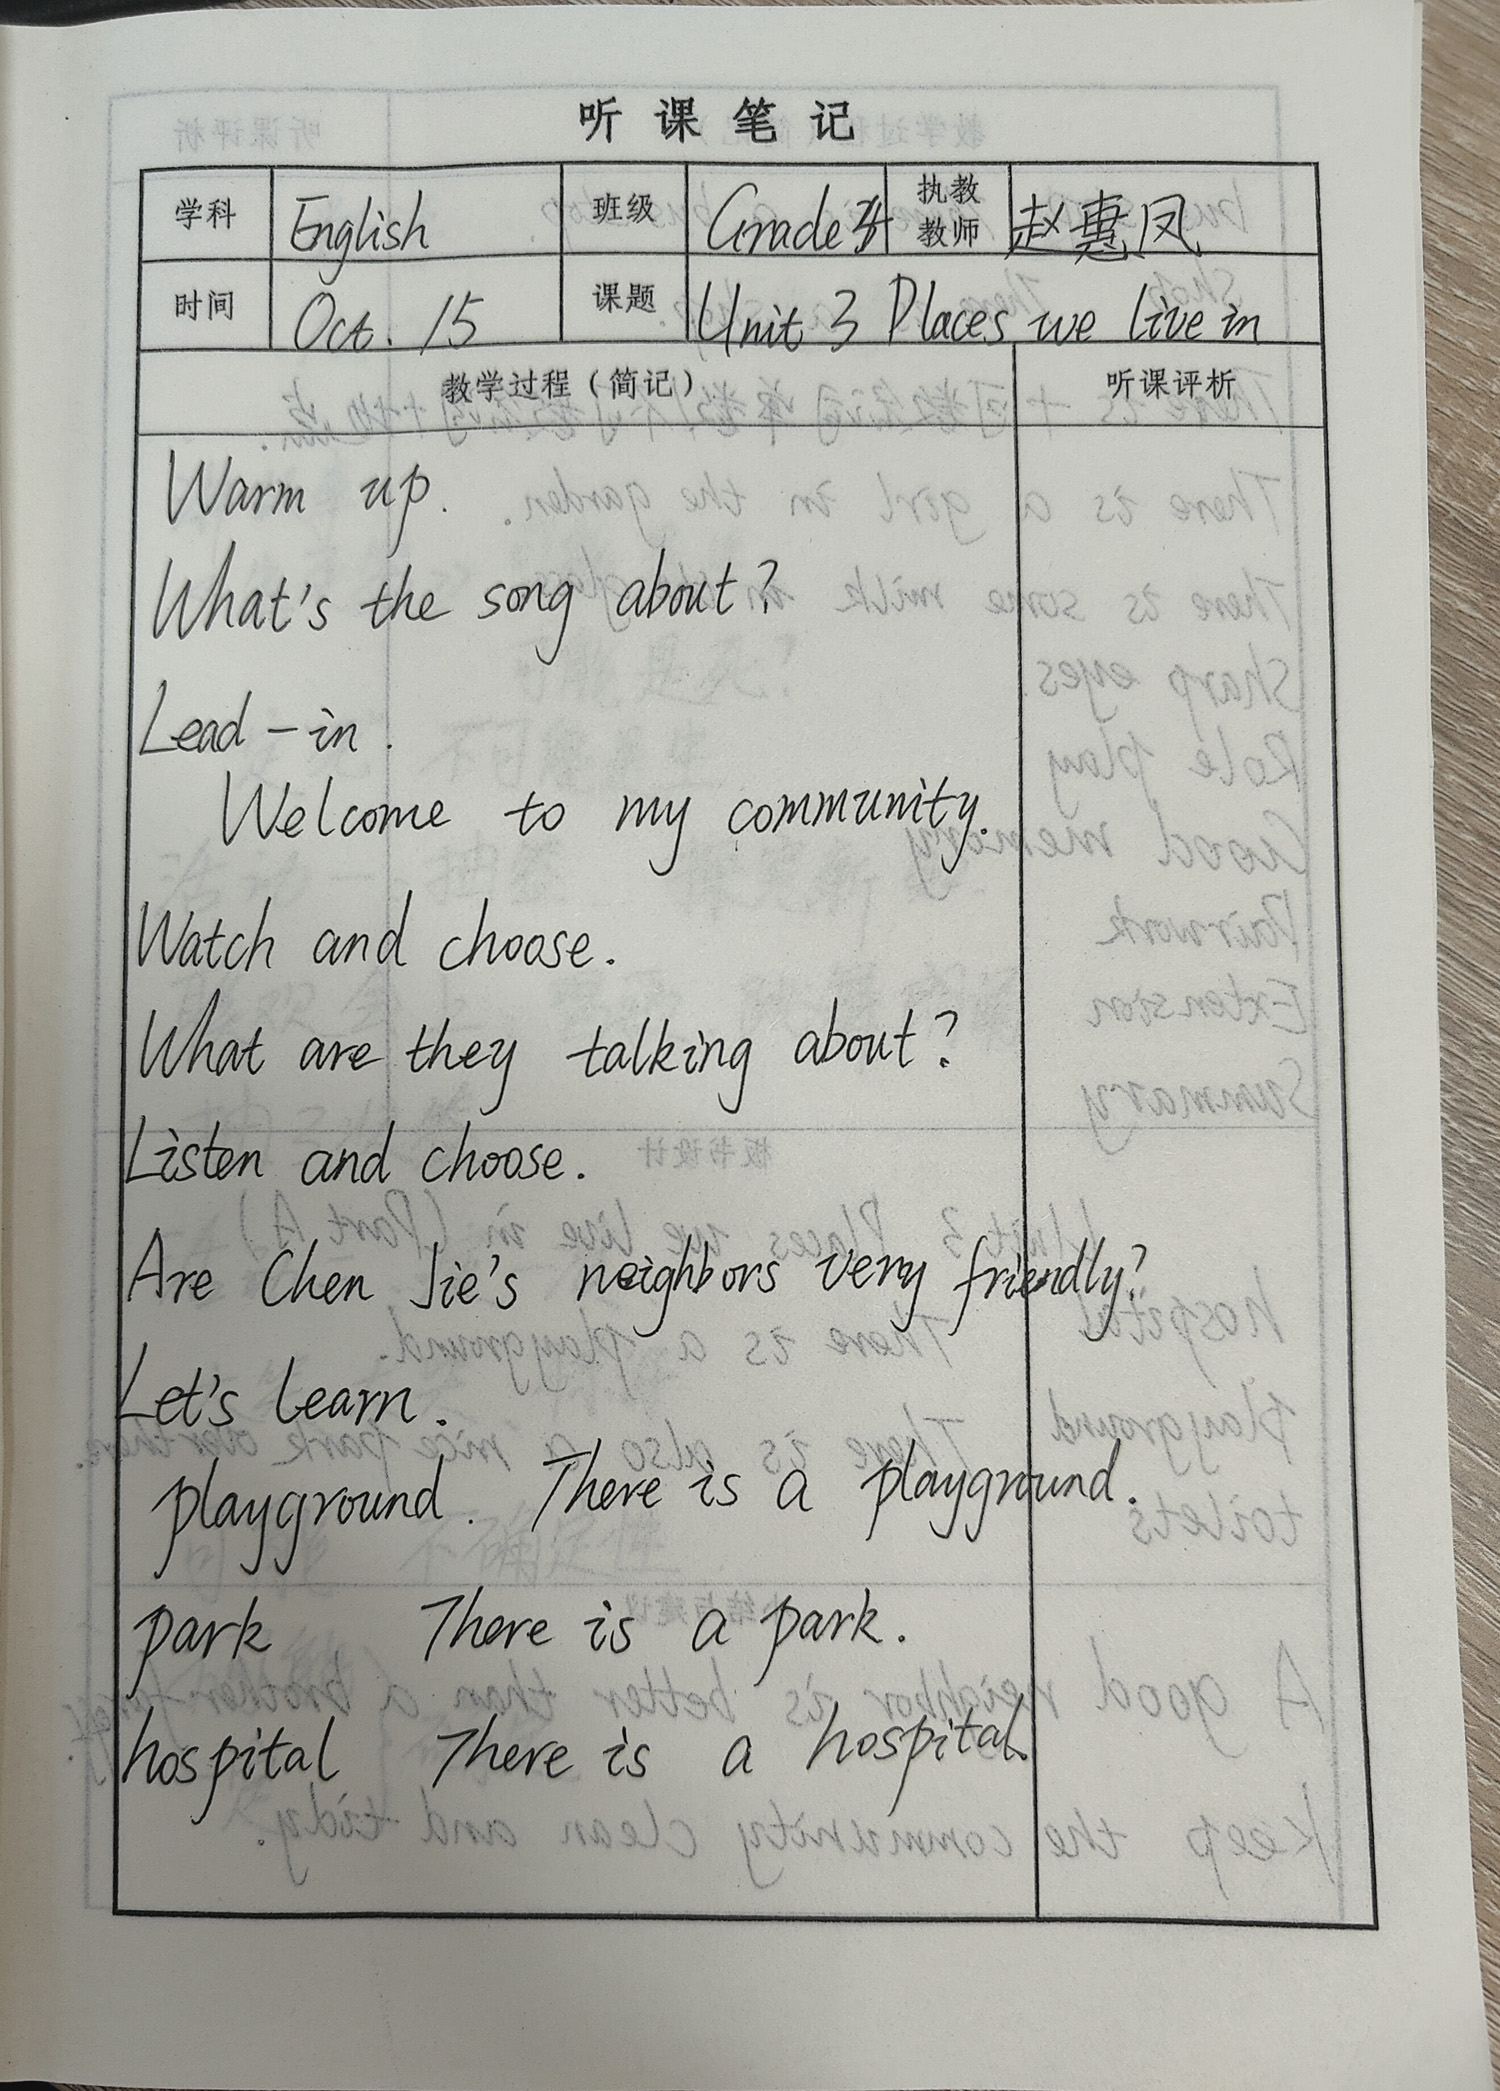 听课笔记
学科 English 班级 Grade 执教教师 赵惠凤
时间 Oct. 15 课题 Unit 3 Places we live in
教学过程（简记） 听课评析
Warm up.
What's the song about?
Lead-in.
Welcome to my community.
Watch and choose.
What are they talking about?
Listen and choose.
Are Chen Jie's neighbors very friendly?
Let's learn.
playground. There is a playground.
park There is a park.
hospital There is a hospital.